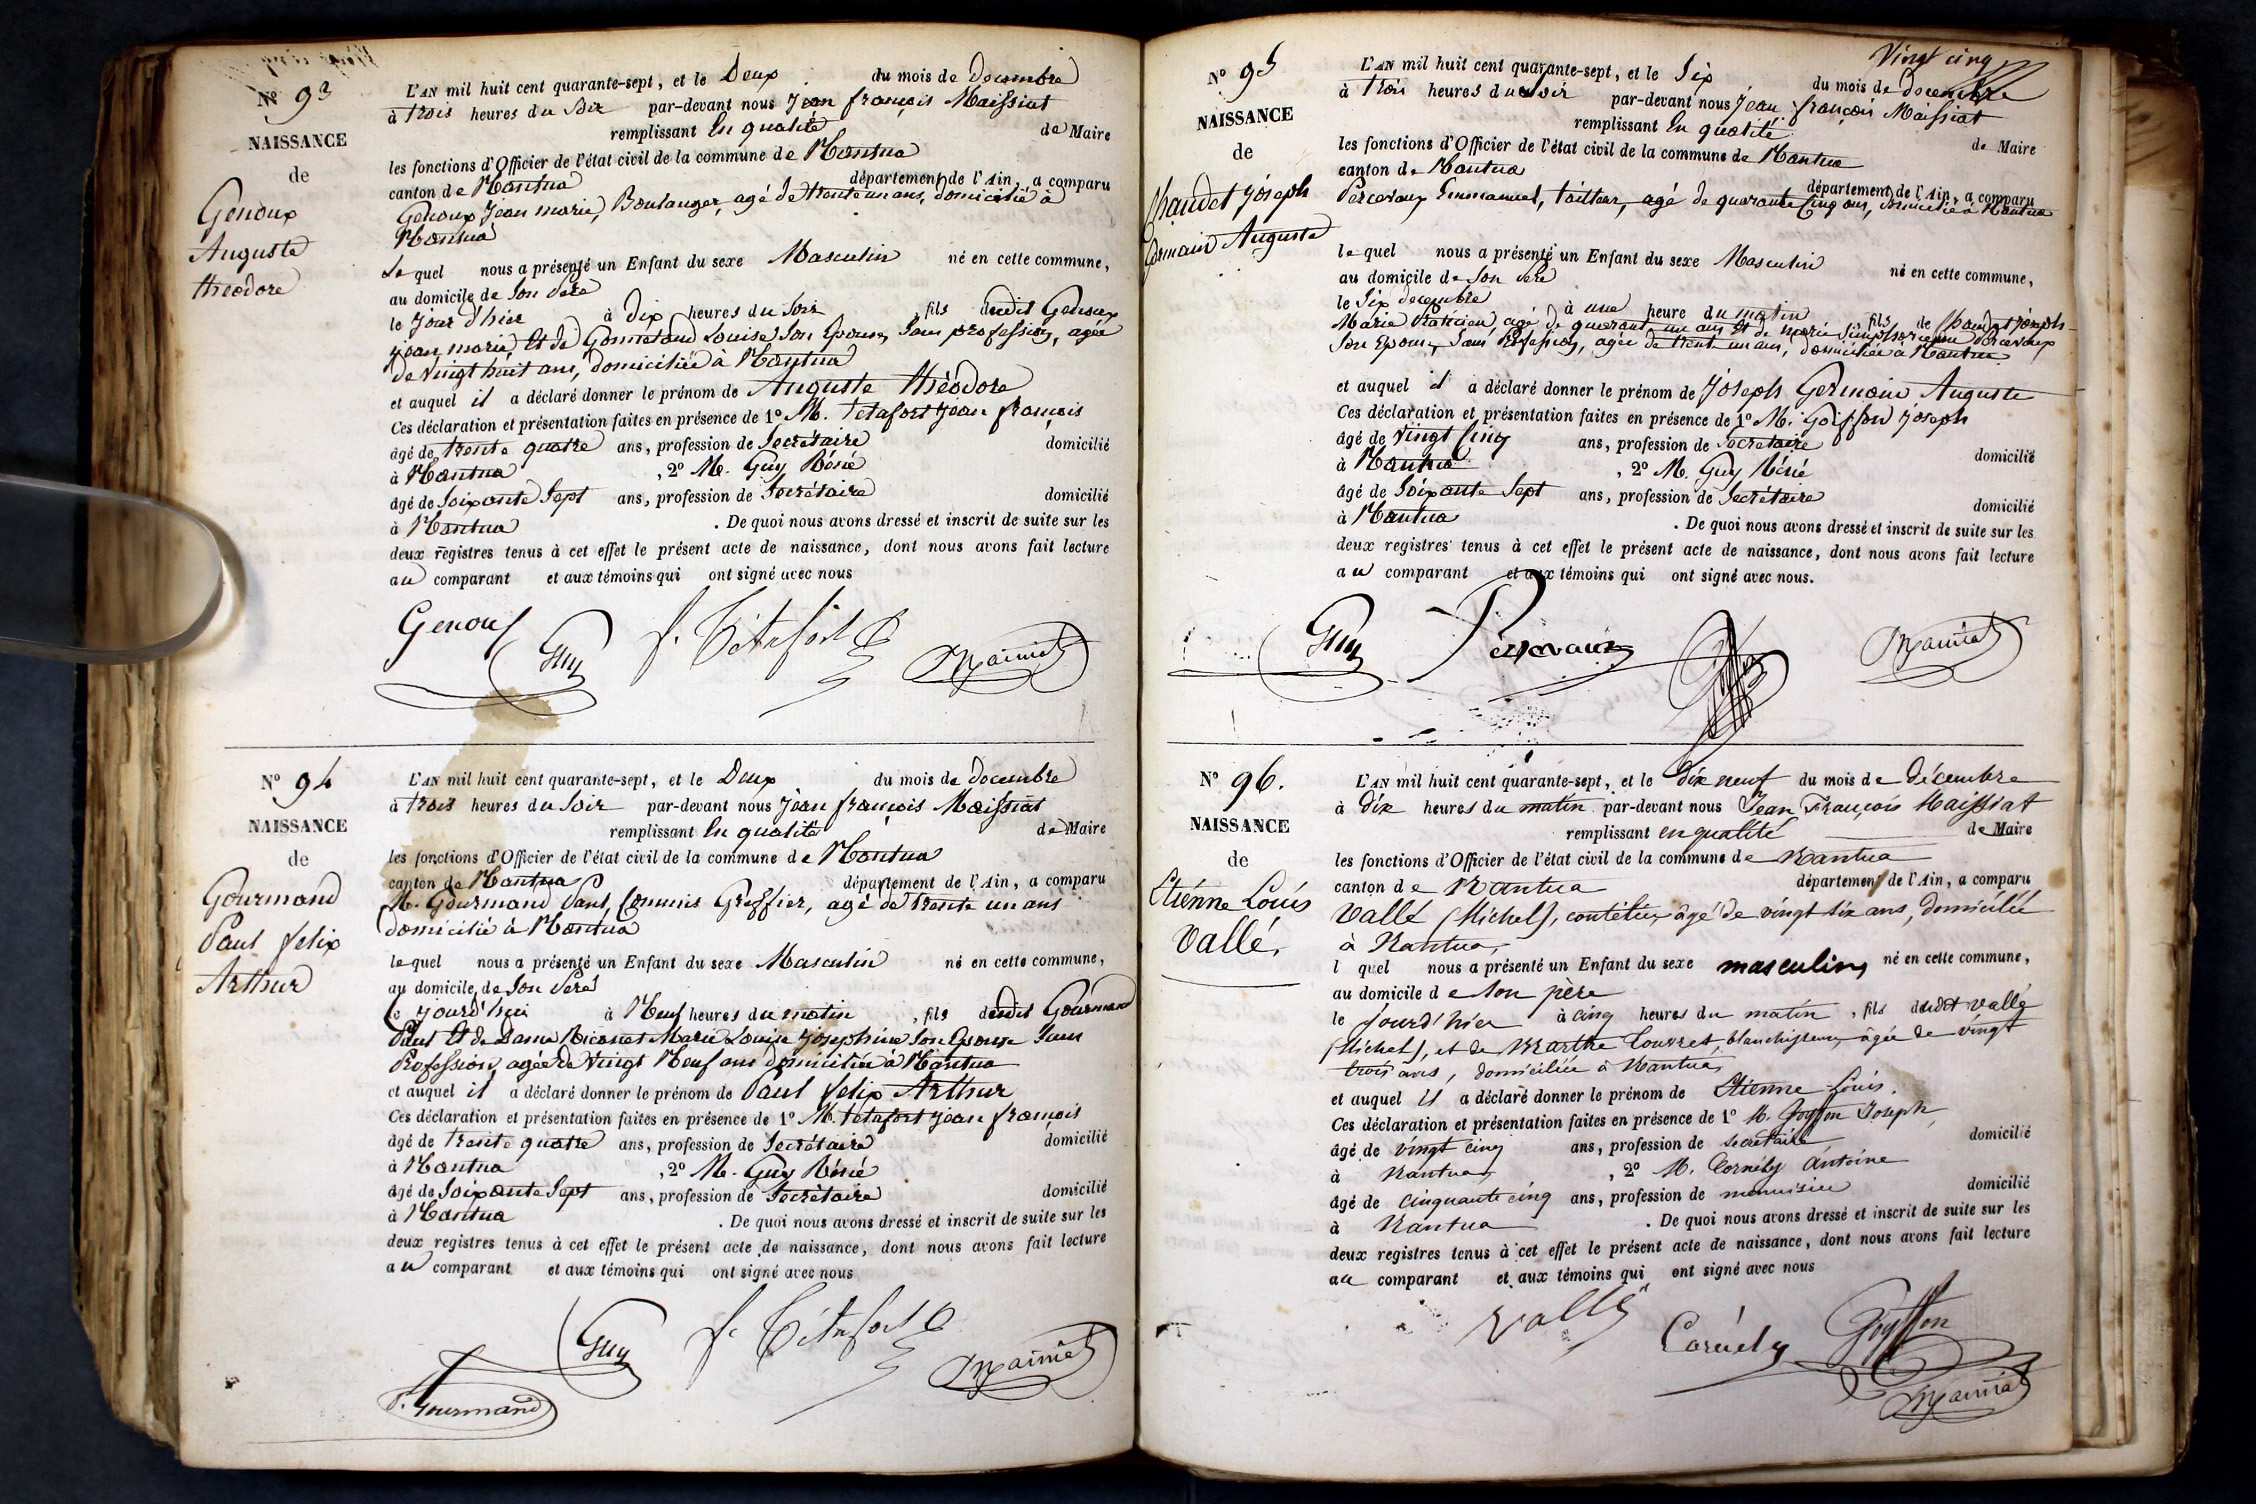 Nº 93
NAISSANCE
de
Genoux
Auguste
théodore
L'AN mil huit cent quarante-sept, et le Deux du mois de decembre
à trois heures du Soir par-devant nous Jean françois Maissiat
remplissant En qualité de Maire
les fonctions d'Officier de l'état civil de la commune de Nantua
canton de Nantua département de l'Ain, a comparu
Genoux Jean marie, Boulanger, agé de trente un ans, domicilié à
Nantua
Le quel nous a présenté un Enfant du sexe Masculin né en cette commune,
au domicile de Son Père
le jour d'hier à Dix heures du Soir fils dudit Genoux
jean marie, Et de Louise Son Epouse, Sans profession, agée
de vingt huit ans, domiciliée à Nantua
et auquel il a déclaré donner le prénom de Auguste théodore
Ces déclaration et présentation faites en présence de 1º M. tétafort Jean françois
âgé de trente quatre ans, profession de Secrétaire domicilié
à Nantua , 2º M. Guy Réné
âgé de Soixante Sept ans, profession de Secrétaire domicilié
à Nantua . De quoi nous avons dressé et inscrit de suite sur les
deux registres tenus à cet effet le présent acte de naissance, dont nous avons fait lecture
au comparant et aux témoins qui ont signé avec nous
Genoux Guy f. Tétafort Maissiat
Nº 94
NAISSANCE
de
Gourmand
Paul felix
Arthur
L'AN mil huit cent quarante-sept, et le Deux du mois de decembre
à trois heures du Soir par-devant nous Jean françois Maissiat
remplissant En qualité de Maire
les fonctions d'Officier de l'état civil de la commune de Nantua
canton de Nantua département de l'Ain, a comparu
M. Gourmand Paul, Commis Greffier, agé de trente un ans
domicilié à Nantua
le quel nous a présenté un Enfant du sexe Masculin né en cette commune,
au domicile de Son Père
le jourd'hui à Neuf heures du matin , fils dudit Gourmand
Paul Et de Dame Marie Louise Josephine Son Epouse Sans
Profession, agée de Vingt Neuf ans domiciliée à Nantua
et auquel il a déclaré donner le prénom de Paul felix Arthur
Ces déclaration et présentation faites en présence de 1º M. tétafort Jean françois
âgé de trente quatre ans, profession de Secrétaire domicilié
à Nantua , 2º M. Guy Réné
âgé de Soixante Sept ans, profession de Secrétaire domicilié
à Nantua . De quoi nous avons dressé et inscrit de suite sur les
deux registres tenus à cet effet le présent acte de naissance, dont nous avons fait lecture
au comparant et aux témoins qui ont signé avec nous
Guy f. Tétafort Maissiat
P. Gourmand
Vingt cinq
Nº 95
NAISSANCE
de
Chaudet Joseph
Germain Auguste
L'AN mil huit cent quarante-sept, et le Six du mois de decembre
à trois heures du soir par-devant nous Jean françois Maissiat
remplissant En qualité de Maire
les fonctions d'Officier de l'état civil de la commune de Nantua
canton de Nantua département de l'Ain, a comparu
Percevaux Emmanuel, tailleur, agé de quarante Cinq ans, domicilié à Nantua
le quel nous a présenté un Enfant du sexe Masculin né en cette commune,
au domicile de Son Père
le Six decembre à une heure du matin fils de Chaudet Joseph
Marie Praticien, agé de quarante un ans Et de Marie Simphorienne Percevaux
Son Epouse, Sans Profession, agée de trente un ans, domiciliée à Nantua
et auquel il a déclaré donner le prénom de Joseph Germain Auguste
Ces déclaration et présentation faites en présence de 1º M. Goiffon Joseph
âgé de Vingt Cinq ans, profession de Secretaire domicilié
à Nantua , 2º M. Guy Réné
âgé de Soixante Sept ans, profession de Secrétaire domicilié
à Nantua . De quoi nous avons dressé et inscrit de suite sur les
deux registres tenus à cet effet le présent acte de naissance, dont nous avons fait lecture
au comparant et aux témoins qui ont signé avec nous.
Guy Percevaux Maissiat
Nº 96.
NAISSANCE
de
Etiénne Louis
Vallé,
L'AN mil huit cent quarante-sept, et le dix neuf du mois de décembre
à dix heures du matin par-devant nous Jean François Maissiat
remplissant en qualité de Maire
les fonctions d'Officier de l'état civil de la commune de Nantua
canton de Nantua département de l'Ain, a comparu
Vallé (Michel), coutelier, âgé de vingt six ans, domicilié
à Nantua,
l quel nous a présenté un Enfant du sexe masculin, né en cette commune,
au domicile de son père
le jourd'hier à cinq heures du matin , fils dudit vallé
(Michel), et de Marthe Couvret, blanchisseuse, âgée de vingt
trois ans, domiciliée à Nantua,
et auquel il a déclaré donner le prénom de Etienne Louis.
Ces déclaration et présentation faites en présence de 1º M. Goyffon Joseph,
âgé de vingt cinq ans, profession de secrétaire domicilié
à Nantua , 2º M. Cornély Antoine
âgé de cinquante cinq ans, profession de menuisier domicilié
à Nantua . De quoi nous avons dressé et inscrit de suite sur les
deux registres tenus à cet effet le présent acte de naissance, dont nous avons fait lecture
au comparant et aux témoins qui ont signé avec nous
Vallé Cornély Goyffon
Maissiat